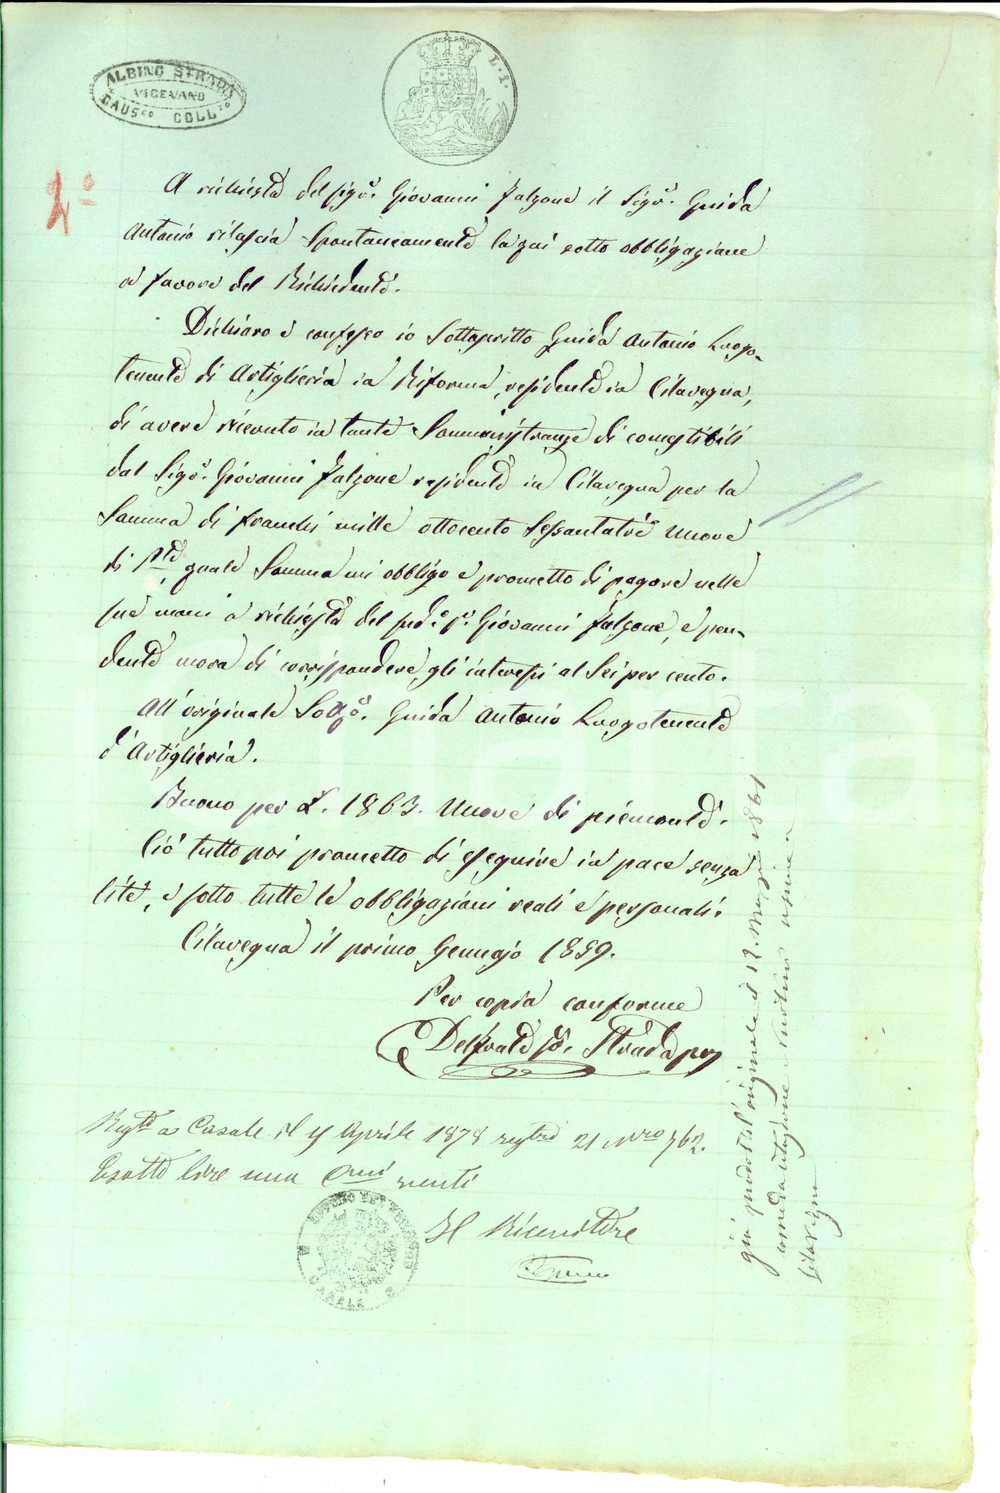 ALBINO STRADA
VIGEVANO
CAUS.co COLL.to
L. 1.
2°
A richiesta del Sigr. Giovanni Falzone il Sigr. Guida
Antonio rilascia spontaneamente la qui sotto obbligazione
a favore del Richiedente.
Dichiaro e confesso io Sottoscritto Guida Antonio Luogo-
tenente di Artiglieria in Riforma, residente in Cilavegna,
di avere ricevuto in tante Somministranze di comestibili
dal Sigr. Giovanni Falzone residente in Cilavegna per la
Somma di franchi mille ottocento Sessantatrè nuove
di Pte quale Somma mi obbligo e prometto di pagare nelle
sue mani a richiesta del pred.o Sr. Giovanni Falzone, e pen-
dente mora di corrispondere gli interessi al Sei per cento.
All'originale Sottoo. Guida Antonio Luogotenente
d'Artiglieria.
Buono per L. 1863. Nuove di piemonte.
Ciò tutto poi prometto di eseguire in pace senza
lite, e sotto tutte le obbligazioni reali e personali.
Cilavegna il primo Gennajo 1859.
Per copia conforme
Delfrate So. Strada proc
Regto a Casale il 4 Aprile 1878 regtro 21 Nro 762.
Esatto lire una Cmi venti
Il Ricevitore
CASALE
già prodotto l'originale il 12. Maggio 1861
Cilavegna